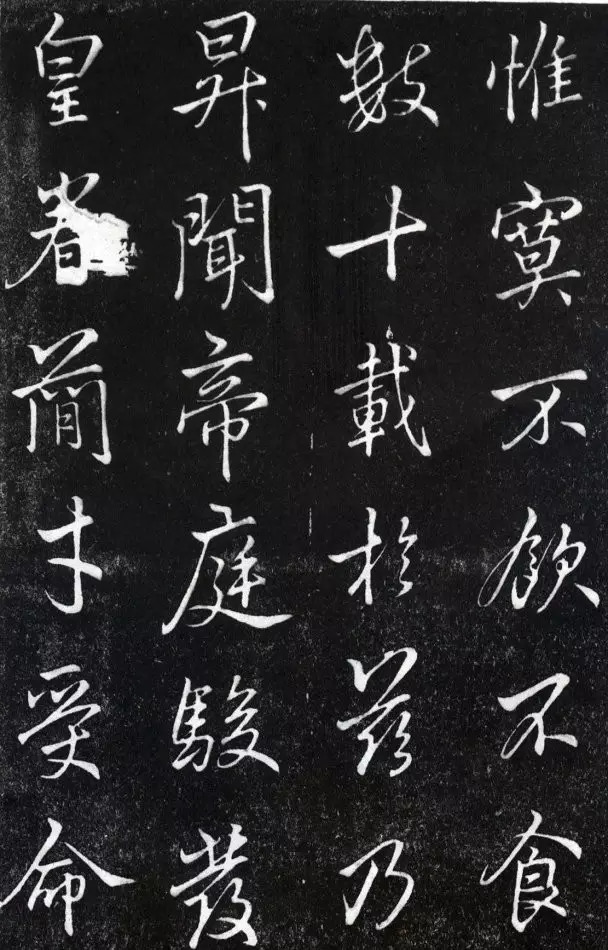 惟寞不飲不食
數十載於茲乃
昇聞帝庭駿發
皇眷簡才受命